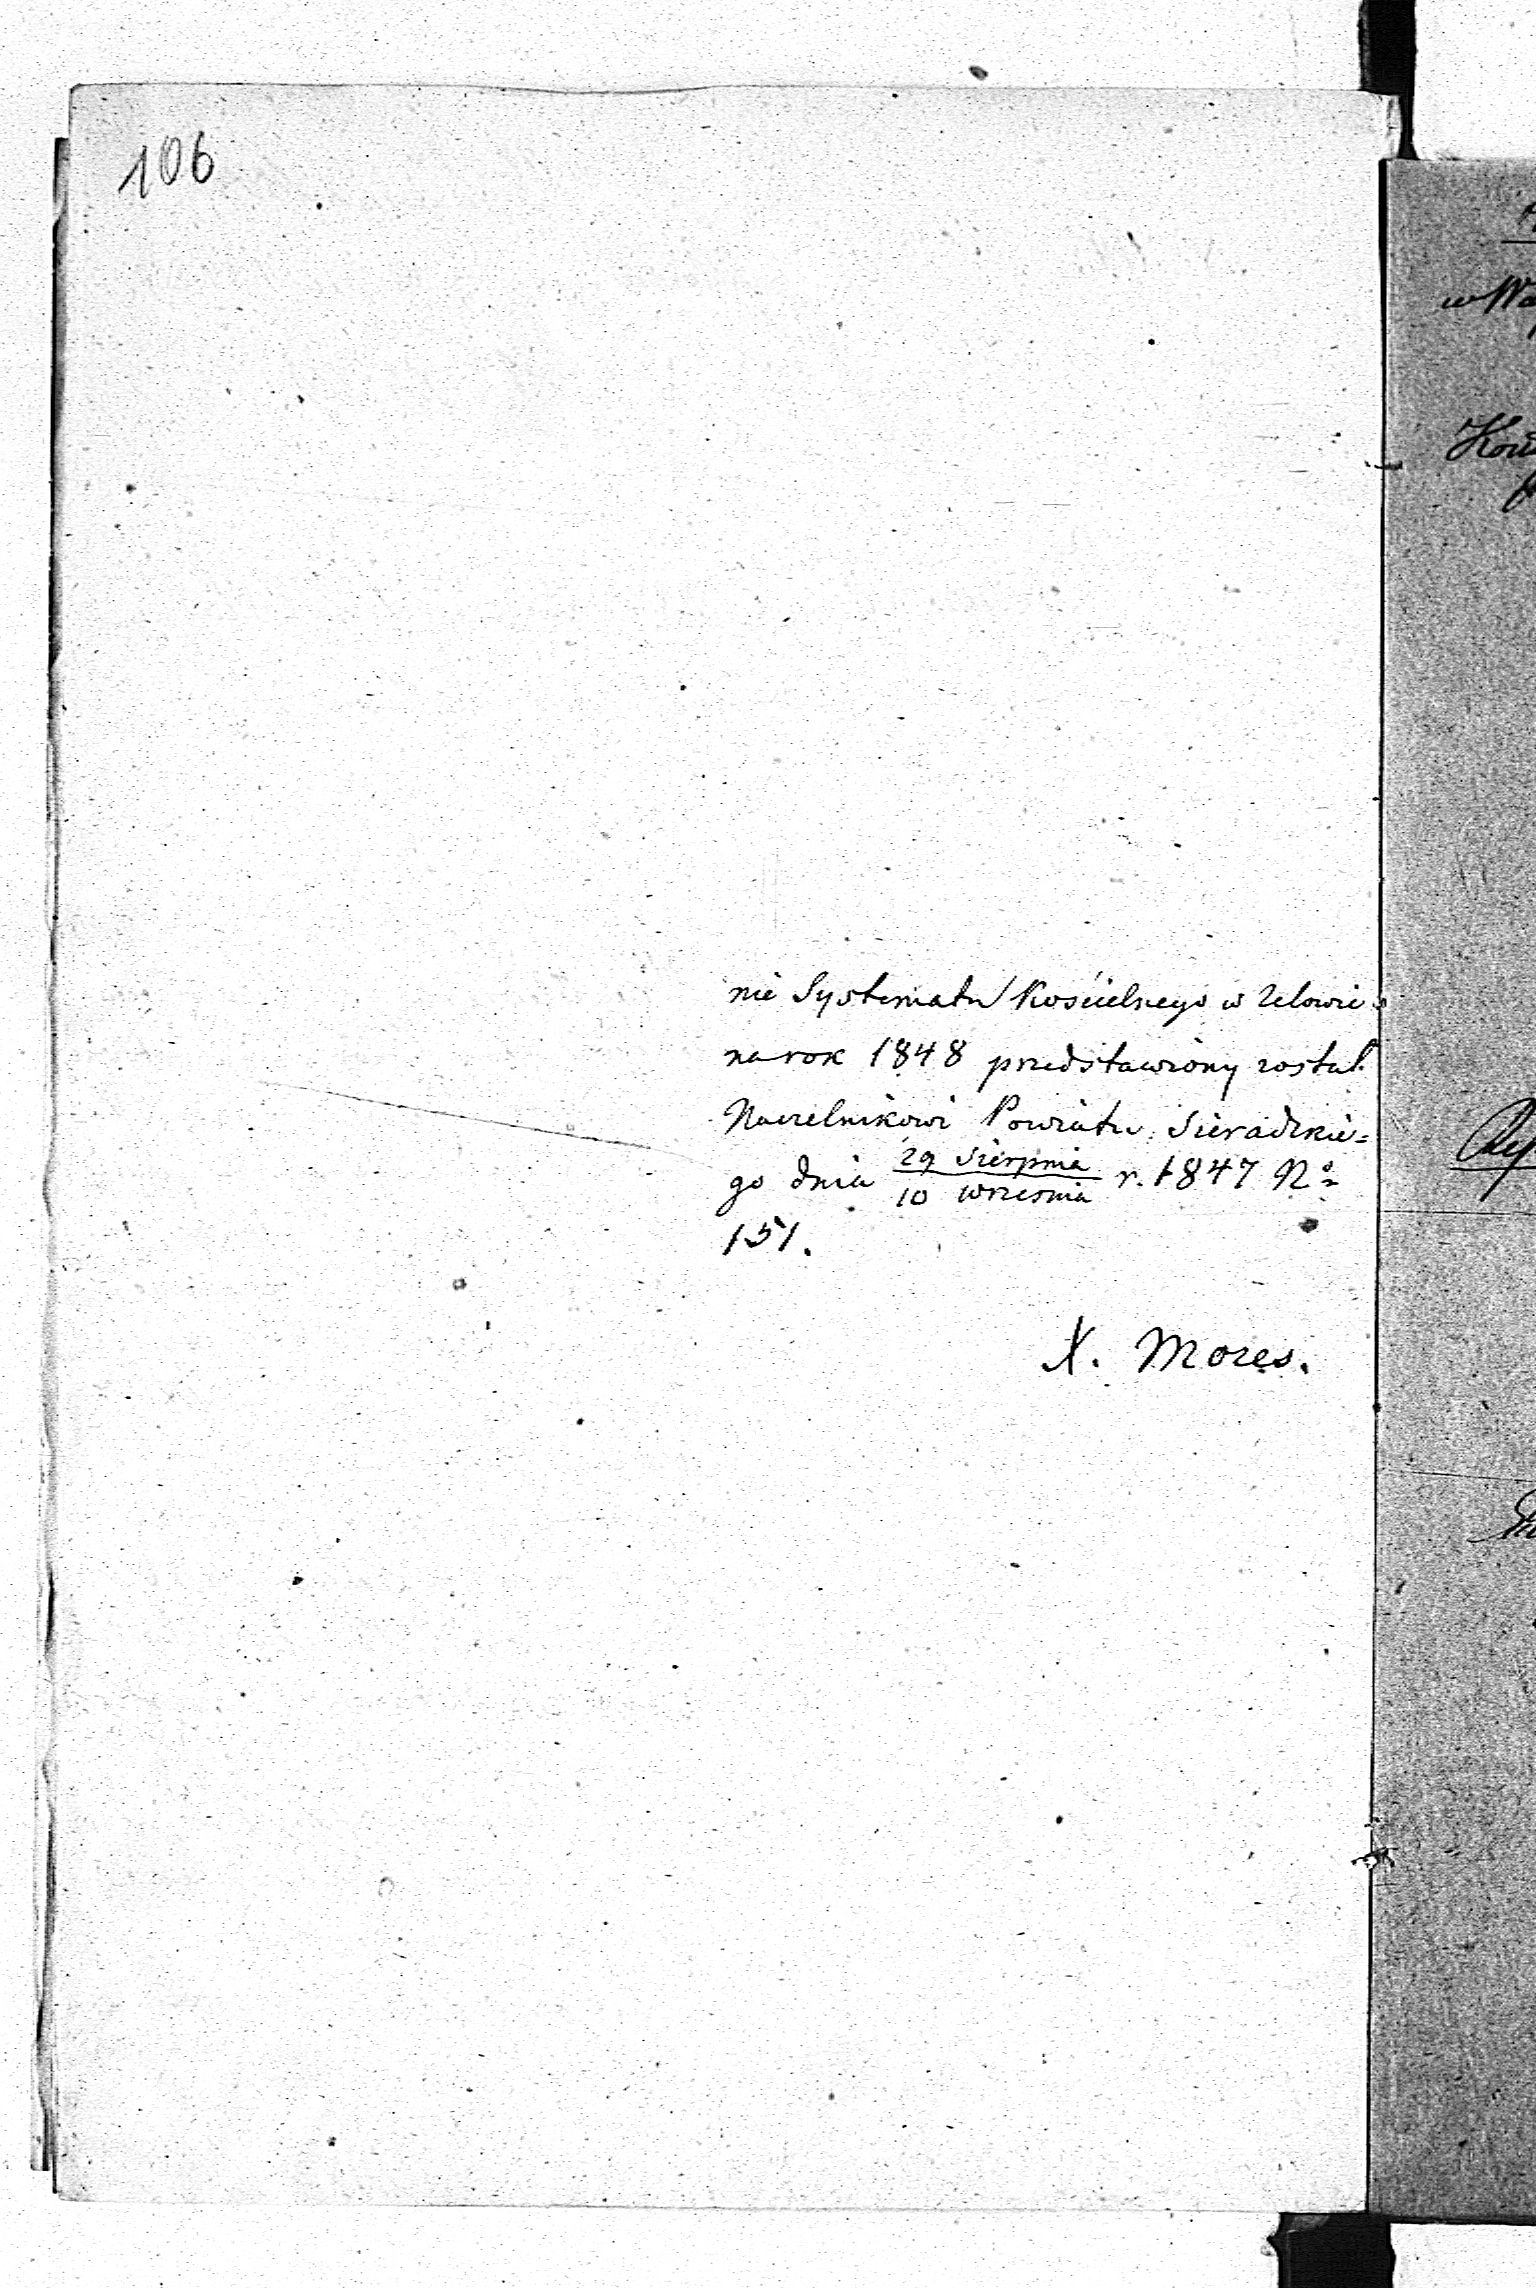 106
nie Systematu Kościelnego w Zelowie
na rok 1848 przedstawiony został
Naczelnikowi Powiatu Sieradzkie=
go dnia 29 Sierpnia / 10 wrzesnia r. 1847 No
151.
X. Mozes.